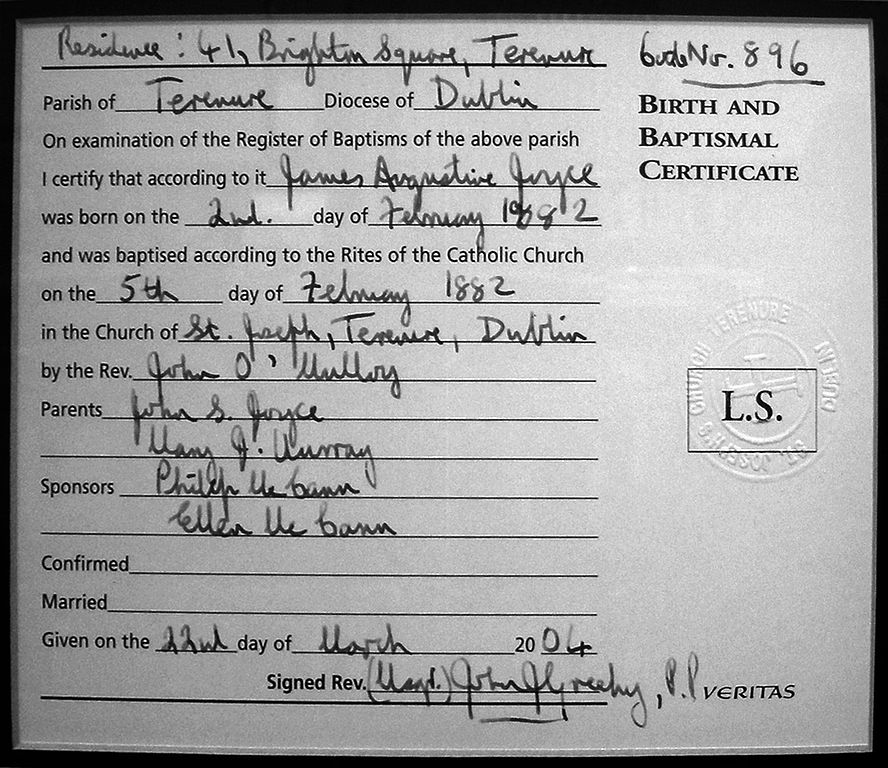 Residence: 41, Brighton Square, Terenure
Parish of Terenure Diocese of Dublin
On examination of the Register of Baptisms of the above parish
I certify that according to it James Augustine Joyce
was born on the 2nd. day of February 1882
and was baptised according to the Rites of the Catholic Church
on the 5th day of February 1882
in the Church of St. Joseph, Terenure, Dublin
by the Rev. John O' Mulloy
Parents John S. Joyce
Mary J. Murray
Sponsors Philip Mc Cann
Ellen Mc Cann
Confirmed
Married
Given on the 22nd day of March 2004
Signed Rev. (Msgr.) John J Greehy, P.P
No. 896
BIRTH AND
BAPTISMAL
CERTIFICATE
CHURCH TERENURE DUBLIN
ST. JOSEPH'S
L.S.
VERITAS